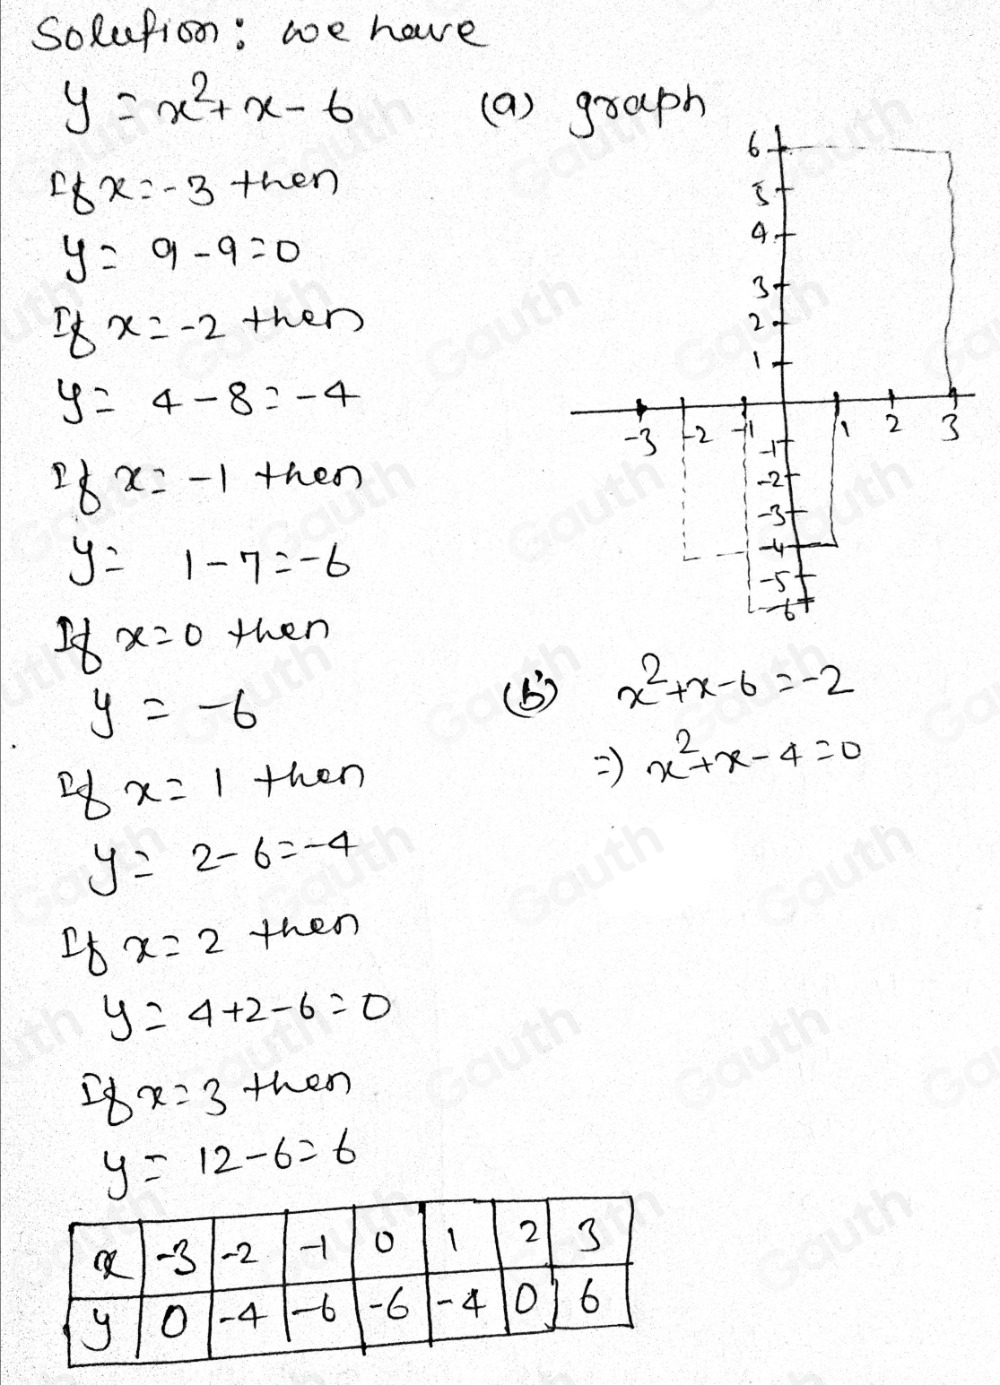 Solution: we have
y = x²+x-6
If x=-3 then
y= 9-9=0
If x=-2 then
y= 4-8=-4
If x=-1 then
y= 1-7=-6
If x=0 then
y = -6
If x=1 then
y= 2-6=-4
If x=2 then
y= 4+2-6=0
If x=3 then
y= 12-6=6
x -3 -2 -1 0 1 2 3
y 0 -4 -6 -6 -4 0 6
(a) graph
6
5
4
3
2
1
-3 -2 -1 1 2 3
-1
-2
-3
-4
-5
-6
(b) x²+x-6=-2
=) x²+x-4=0
Gauth